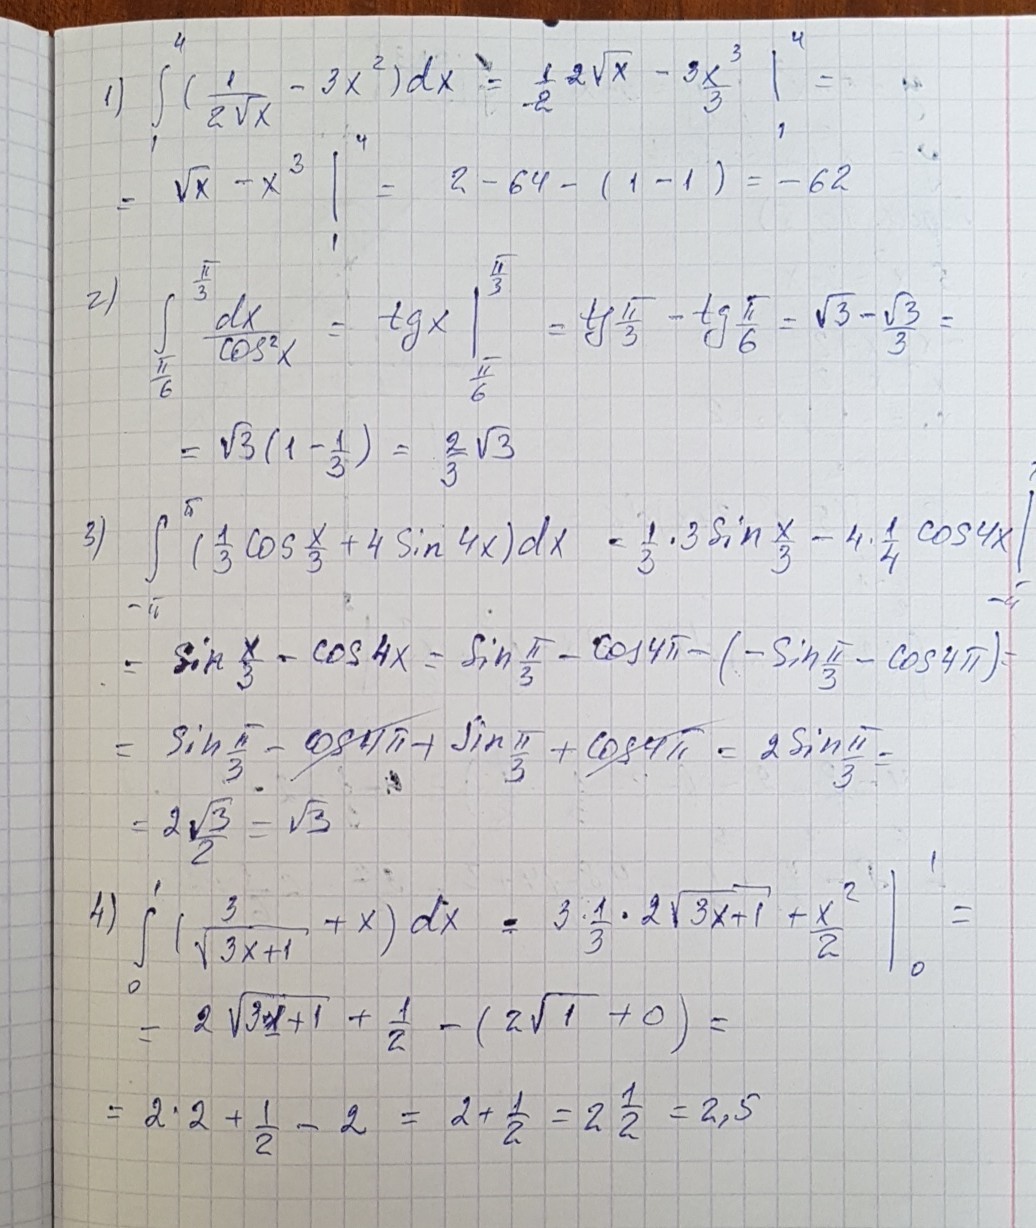 1) ∫₁⁴ (1/(2√x) - 3x²)dx = 1/2 2√x - 3x³/3 |₁⁴ =
= √x - x³ |₁⁴ = 2 - 64 - (1 - 1) = -62
2) ∫_{π/6}^{π/3} dx/cos²x = tgx |_{π/6}^{π/3} = tg π/3 - tg π/6 = √3 - √3/3 =
= √3(1 - 1/3) = 2/3 √3
3) ∫_{-π}^{π} (1/3 cos x/3 + 4 sin 4x)dx = 1/3 · 3 sin x/3 - 4 · 1/4 cos 4x |_{-π}
= sin x/3 - cos 4x = sin π/3 - cos 4π - (-sin π/3 - cos 4π) =
= sin π/3 - cos 4π + sin π/3 + cos 4π = 2 sin π/3 =
= 2 √3/2 = √3
4) ∫₀¹ (3/√(3x+1) + x) dx = 3 · 1/3 · 2√(3x+1) + x²/2 |₀¹ =
= 2√(3·1+1) + 1/2 - (2√1 + 0) =
= 2·2 + 1/2 - 2 = 2 + 1/2 = 2 1/2 = 2,5